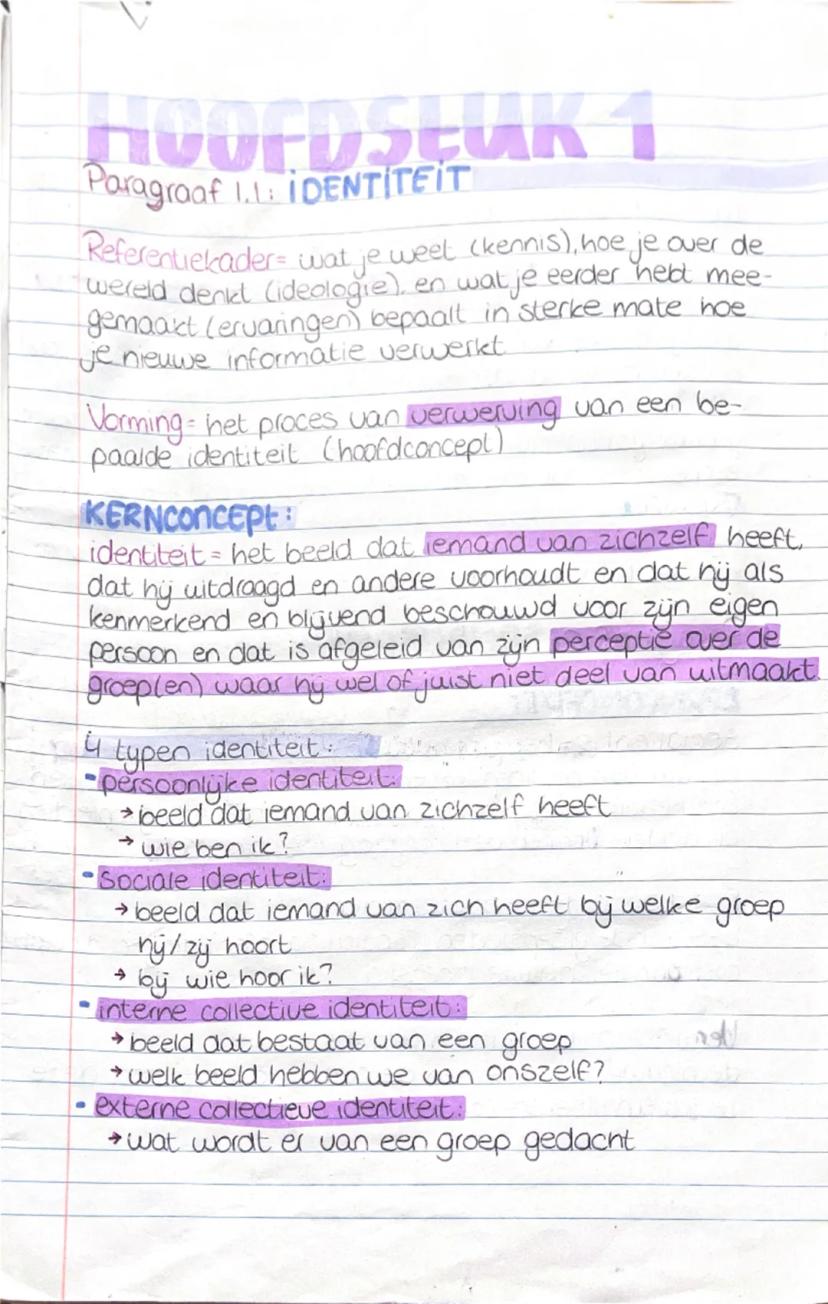 HOOFDSTUK 1
Paragraaf 1.1: iDENTITEIT
Referentiekader= wat je weet (kennis), hoe je over de
wereld denkt (ideologie), en wat je eerder hebt mee-
gemaakt (ervaringen) bepaalt in sterke mate hoe
je nieuwe informatie verwerkt
Vorming= het proces van verwerving van een be-
paalde identiteit (hoofdconcept)
KERNCONCEPT:
identiteit = het beeld dat iemand van zichzelf heeft,
dat hij uitdraagd en andere voorhoudt en dat hij als
kenmerkend en blijvend beschouwd voor zijn eigen
persoon en dat is afgeleid van zijn perceptie over de
groep(en) waar hij wel of juist niet deel van uitmaakt.
4 typen identiteit:
- persoonlijke identiteit:
→ beeld dat iemand van zichzelf heeft
→ wie ben ik?
- Sociale identiteit:
→ beeld dat iemand van zich heeft bij welke groep
hij/zij hoort
→ bij wie hoor ik?
- interne collective identiteit:
→ beeld dat bestaat van een groep
→ welk beeld hebben we van onszelf?
- externe collectieve identiteit:
→ wat wordt er van een groep gedacht